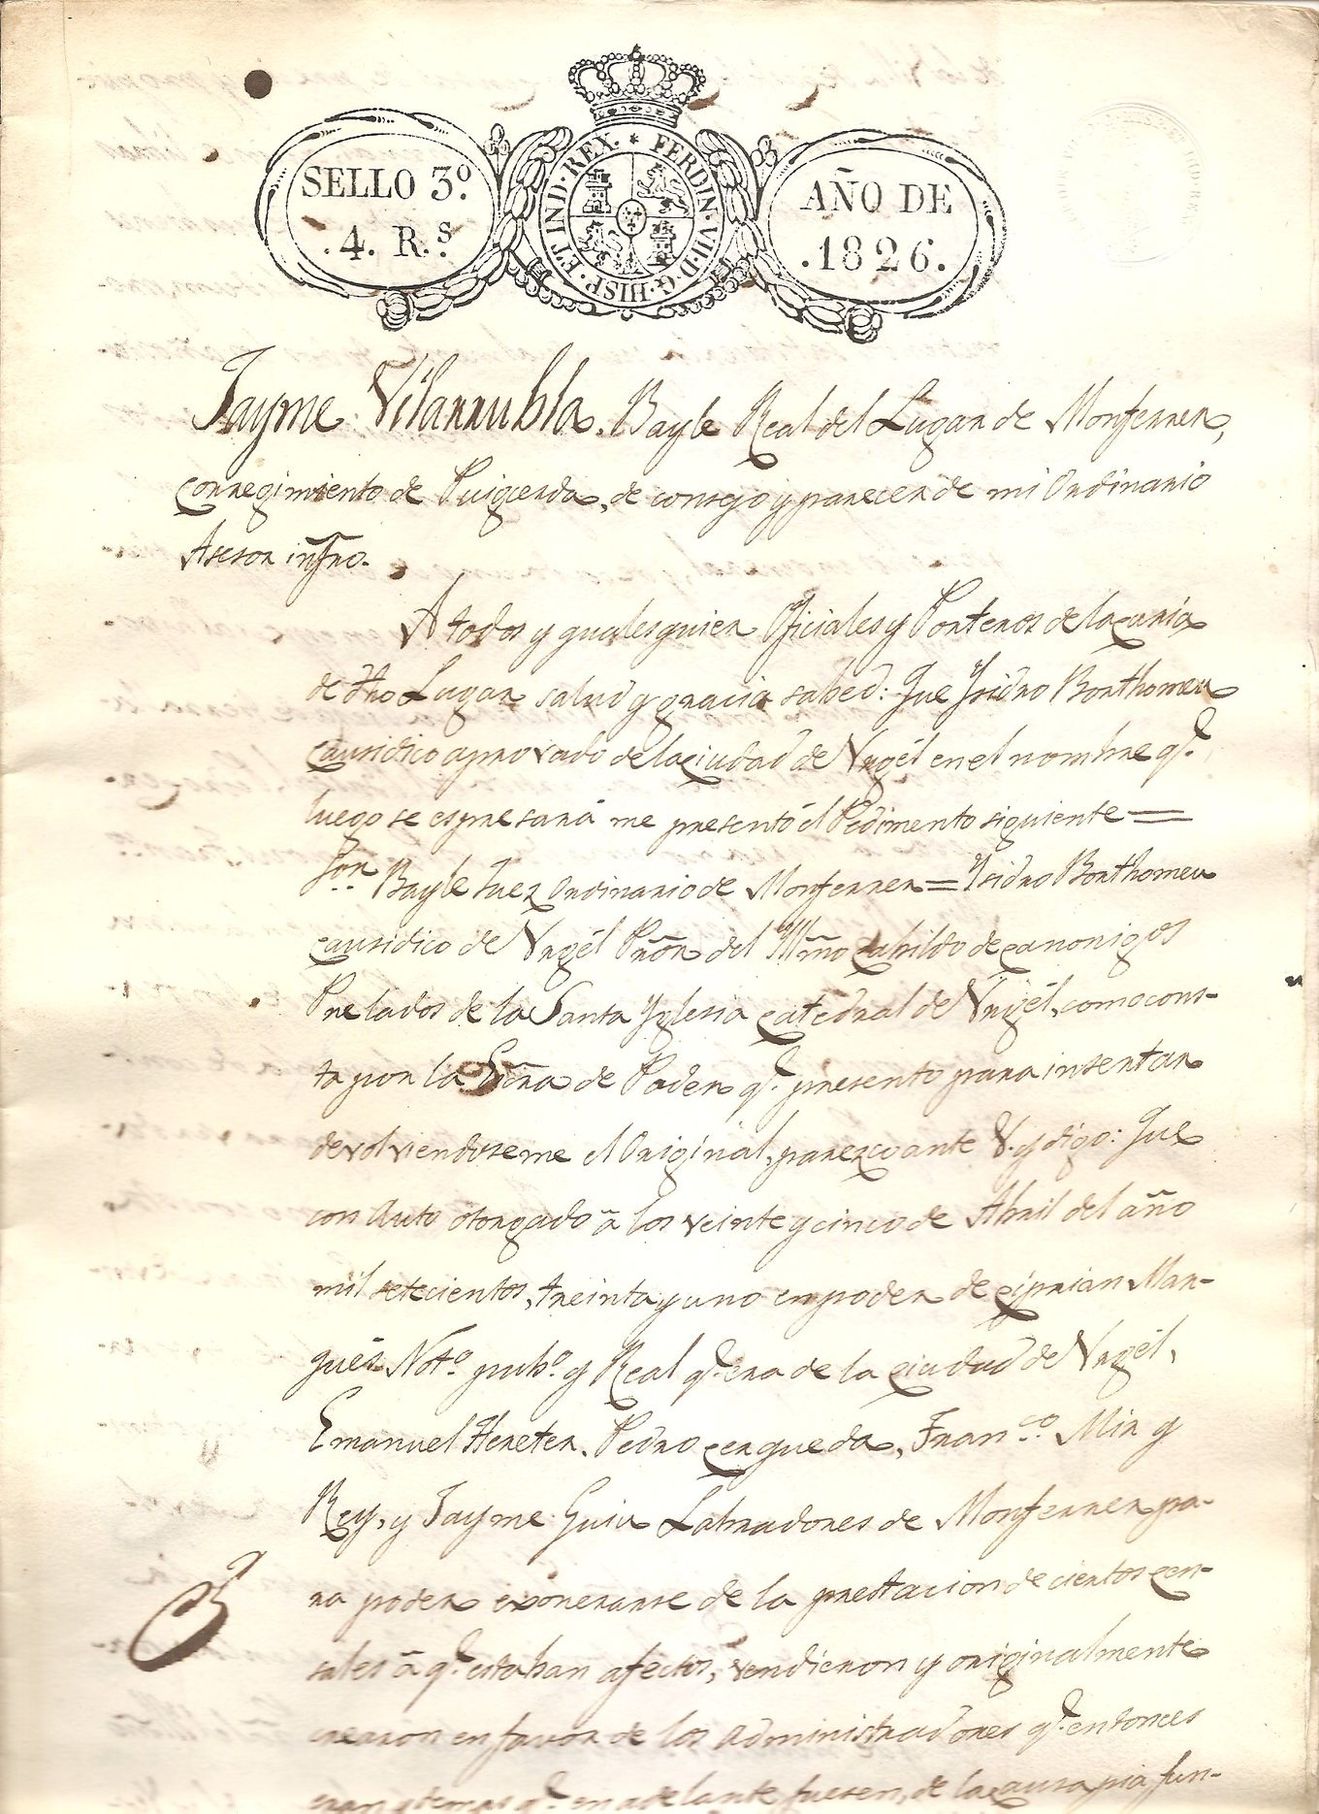 SELLO 3º.
.4. R.s
FERDIN·VII·D·G·HISP·ET IND·REX.
AÑO DE
.1826.
Jayme Vilarrubla. Bayle Real del Lugar de Monferrer,
corregimiento de Puigcerda, de consejo y parecer de mi Ordinario
Asesor infro.
A todos y qualesquier Oficiales y Porteros de la Curia
de dho Lugar salud y gracia sabed: Que Ysidro Borthomeu
causidico aprovado de la ciudad de Vrgél en el nombre q.e
luego se espresará me presentó el Pedimento siguiente =
Sor. Bayle Juez Ordinario de Monferrer = Ysidro Borthomeu
causidico de Vrgél Pror. del Yllmo Cabildo de canonigos
Prelados de la Santa Yglesia catedral de Vrgél, como cons-
ta por la Escra de Poder q.e presento para insertar
devolviendoseme el Original, parezco ante V. y digo: Que
con Auto otorgado á los veinte y cinco de Abril del año
mil setecientos, treinta y uno en poder de Ciprian Mar-
qués Noto. pubo. y Real q.e era de la ciudad de Vrgél,
Emanuel Hereter, Pedro Cerqueda, Franco. Mir y
Rey, y Jayme Guiu Labradores de Monferrer pa-
ra poder exonerarse de la prestacion de ciertos cen-
sales á q.e estaban afectos, vendieron y originalmente
crearon en favor de los Administradores q.e entonces
eran y demas q.e en adelante fuesen, de la causa pia fun-